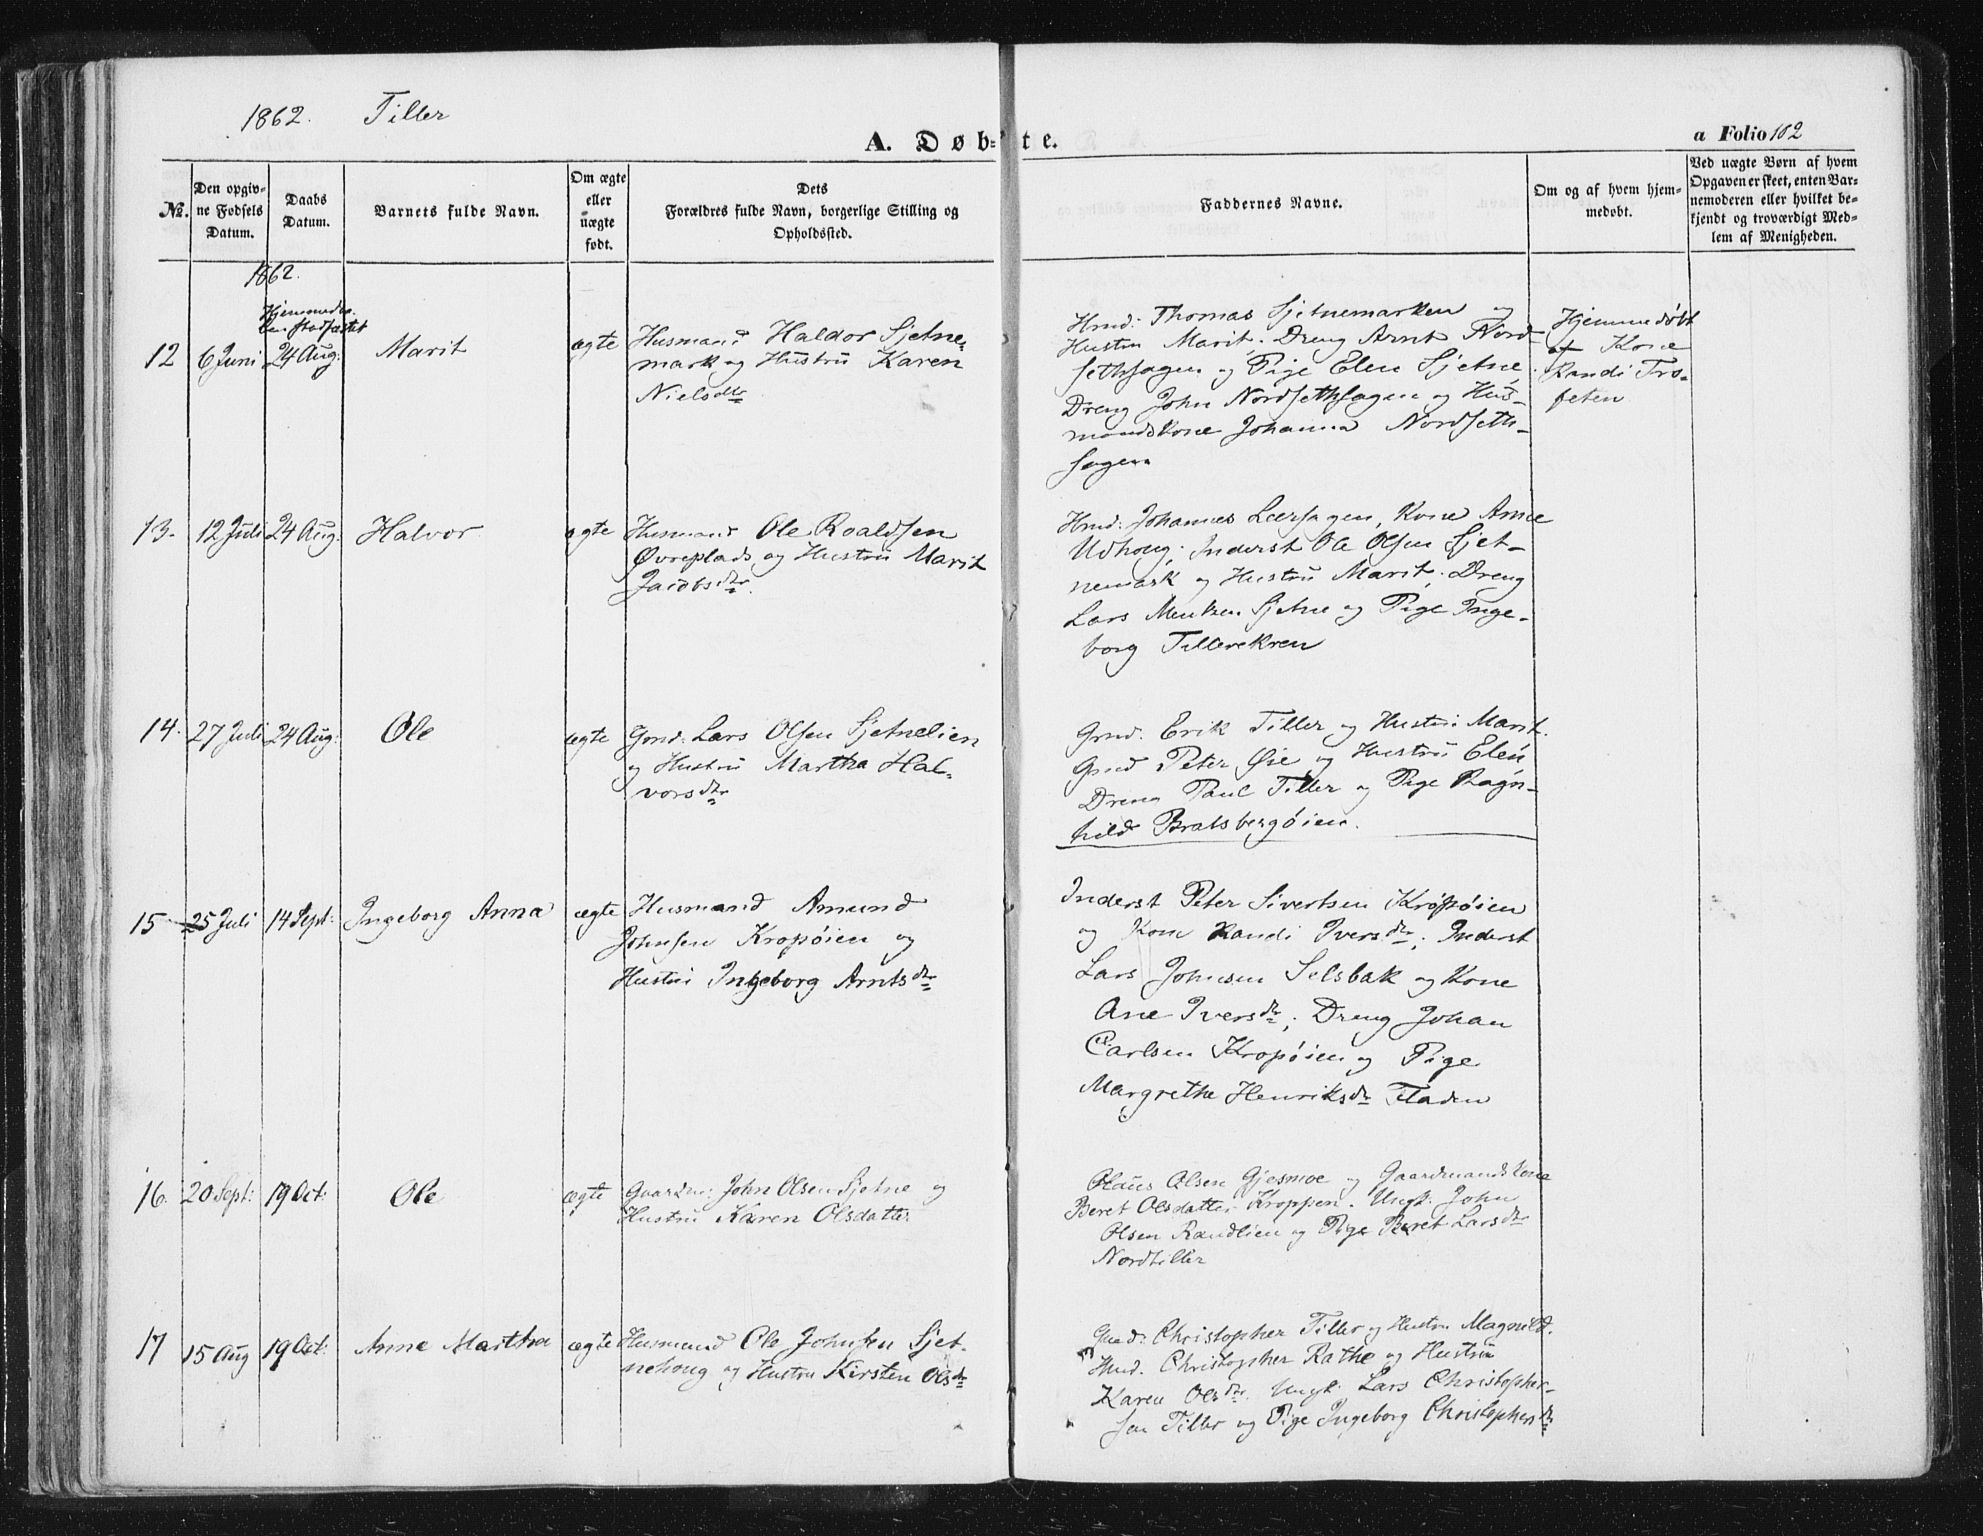 1862. Tiller
A. Døbte.
a Folio 102
No.
Den opgivne Fødsels Datum.
Daabs Datum.
Barnets fulde Navn.
Om ægte eller uægte født.
Dets Forældres fulde Navn, borgerlige Stilling og Opholdssted.
Faddernes Navne.
Om og af hvem hjemmedøbt.
Ved uægte Børn af hvem Opgaven er skeet, enten Barnemoderen eller hvilket bekjendt og troværdigt Medlem af Menigheden.
1862.
12
6 Juni
24 Aug:
Marit
ægte
Husmand Haldor Sjetne-
mark og Hustru Karen
Nielsdtr
Hmd: Thomas Sjetnemarken og
Hustru Marit. Dreng Arnt Nord-
sethsagen og Pige Elen Sjetne.
Dreng John Nordsethsagen og Hus-
mandskone Johanna Nordseth-
sagen
Hjemmedøbt
af Kone
Randi Tro-
feten
13.
12 Juli
24 Aug:
Halvor
ægte
Husmand Ole Roaldsen
Øvreplads og Hustru Marit
Jacobsdtr.
Hmd: Johannes Leersagen, Kone Anne
Udhoug; Inderst Ole Olsen Sjet-
nemark og Hustru Marit; Dreng
Lars Sjetne og Pige Inge-
borg Tillerekren
14.
27 Juli
24 Aug:
Ole
ægte
Gmd: Lars Olsen Sjetnelien
og Hustru Martha Hal-
vorsdtr
Gmd: Erik Tiller og Hustru Marit.
Gmd Peter Øie og Hustru Elen
Dreng Paul Tiller og Pige Ragn-
hild Bratsbergøien.
15
25 Juli
14 Sept:
Ingeborg Anna
ægte
Husmand Amund
Johnsen Kropøien og
Hustru Ingeborg Arntsdtr
Inderst Peter Sivertsen Kropøien
og Kone Randi Iversdtr; Inderst
Lars Johnsen Selsbak og Kone
Ane Iversdtr; Dreng Johan
Carlsen Kropøien og Pige
Margrethe Henriksdtr Fladen
16.
20 Sept:
19 Oct:
Ole
ægte
Gaardm: John Olsen Sjetne og
Hustru Karen Olsdatter
Claus Olsen Gjesmoe og Gaardmandskone
Beret Olsdatter Kroppen. Ungk. John
Olsen Randlien og Pige Beret Larsdtr
Nordtiller
17
15 Aug
19 Oct:
Anne Martha
ægte
Husmand Ole Johnsen Sjet-
nehoug og Hustru Kirsten Olsdtr
Gmd: Christopher Tiller og Hustru Magnild.
Hmd. Christopher Rathe og Hustru
Karen Olsdtr. Ungk. Lars Christopher-
sen Tiller og Pige Ingeborg Christophersdtr